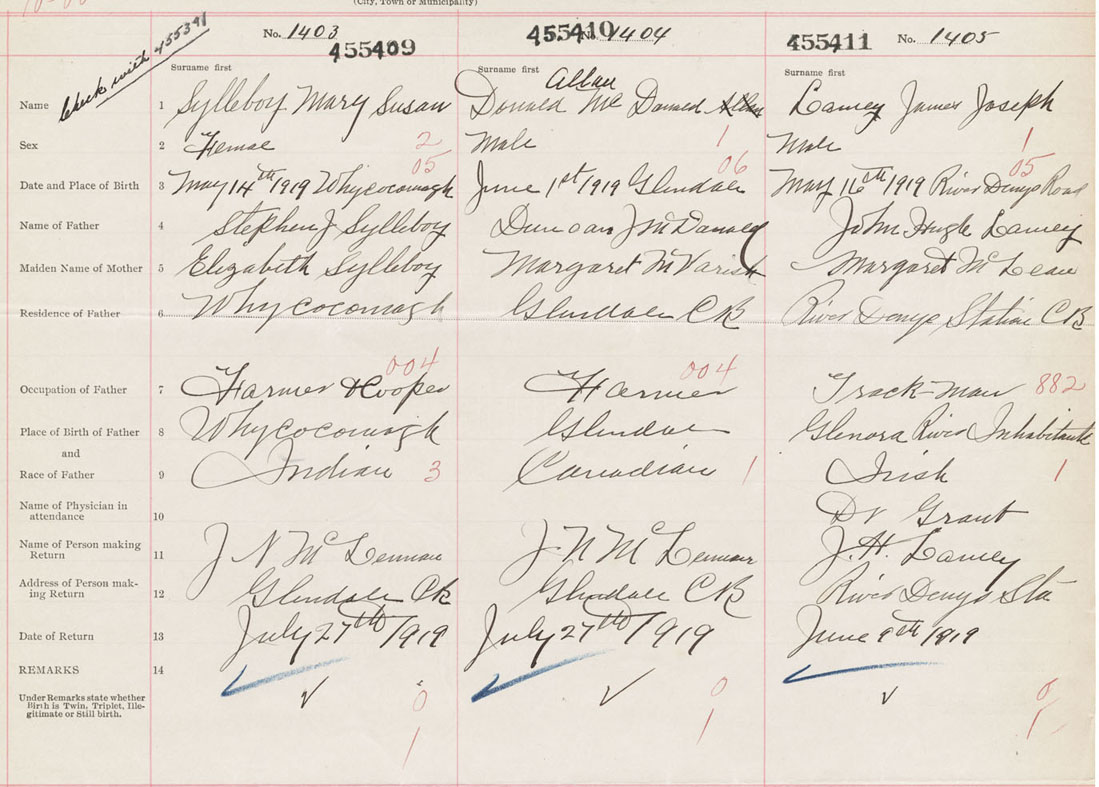 (City, Town or Municipality)
Check with 455391
No. 1403 455409 455410 No. 1404 455411 No. 1405
Surname first Surname first Surname first
Allan
Name 1 Sylleboy Mary Susan Donald Mc Donned Allan Lamey James Joseph
Sex 2 Femae 2 Male 1 Male 1
05 06 05
Date and Place of Birth 3 May 14th 1919 Whycocomagh June 1st/1919 Glendale May 16th 1919 River Denys Road
Name of Father 4 Stephen J Sylleboy Duncan J McDonald John Hugh Lamey
Maiden Name of Mother 5 Elizabeth Sylleboy Margaret McVarish Margaret McLean
Residence of Father 6 Whycocomagh Glendale CB River Denys Station CB
004 004
Occupation of Father 7 Farmer & Cooper Farmer Track-man 882
Place of Birth of Father 8 Whycocomagh Glendale Glenora River Inhabitants
and
Race of Father 9 Indian 3 Canadian 1 Irish 1
Name of Physician in
attendance 10 Dr Grant
Name of Person making
Return 11 J N McLennan J N McLennan J. H. Lamey
Address of Person mak-
ing Return 12 Glendale CB Glendale CB River Denys Sta
Date of Return 13 July 27th/1919 July 27th/1919 June 9th/1919
REMARKS 14
Under Remarks state whether
Birth is Twin, Triplet, Ille-
gitimate or Still birth.
0 0 0
1 1 1